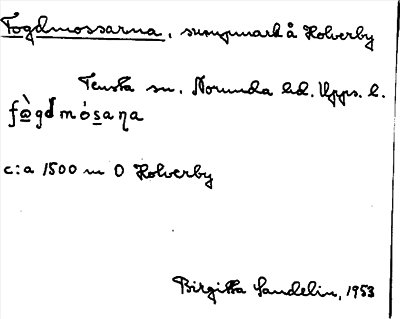 Fogdmossarna, sumpmark å Holverby
Tensta sn. Norunda hd. Upps. l.
fàgdmósaɳa
c:a 1500 m O Holverby
Birgitta Sandelin, 1953